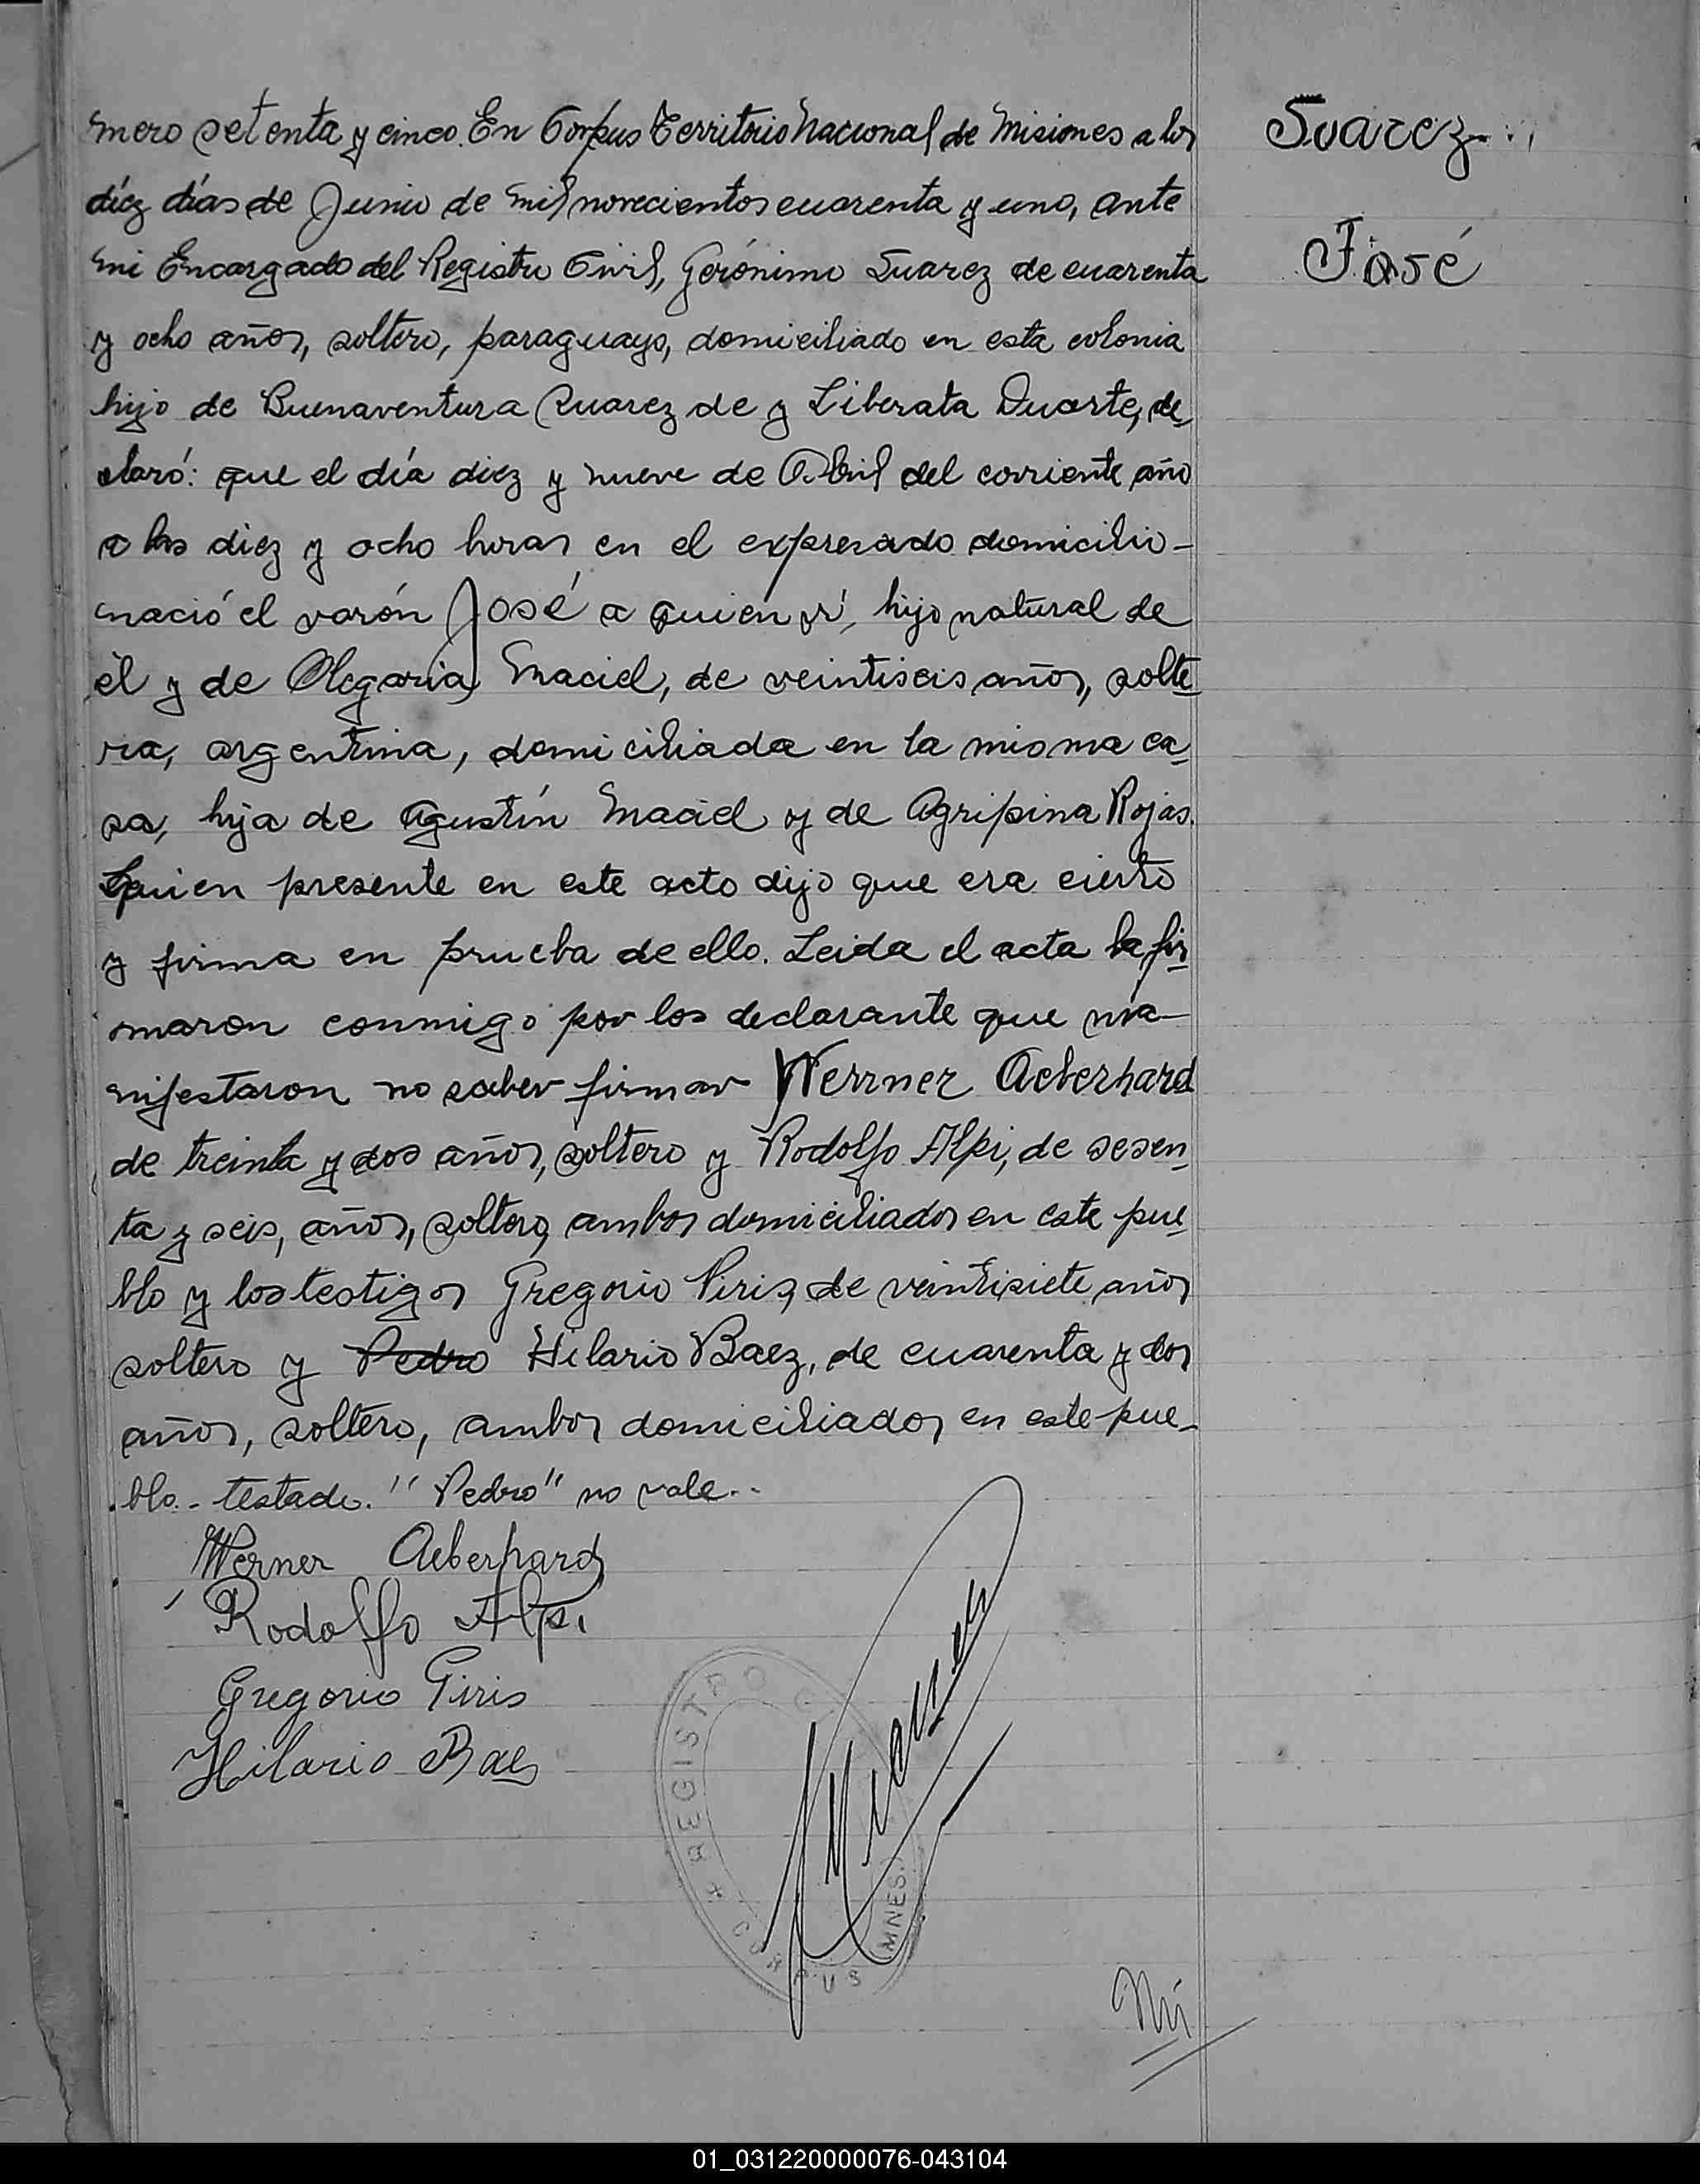 mero setenta y cinco. En Corpus Territorio Nacional de Misiones a los
diéz días de Junio de mil novecientos cuarenta y uno, ante
mi Encargado del Registro Civil, Gerónimo Suarez de cuarenta
y ocho años, soltero, paraguayo, domiciliado en esta colonia
hijo de Buenaventura Suarez de y Liberata Duarte, de
claró: que el día diez y nueve de Abril del corriente año
a las diez y ocho horas en el expresado domicilio-
nació el varón José a quien vi, hijo natural de
él y de Olegaria Maciel, de veintiseis años, solte
ra, argentina, domiciliada en la misma ca
sa, hija de Agustín Maciel y de Agripina Rojas.
quien presente en este acto dijo que era cierto
y firma en prueba de ello. Leida el acta la fir
maron conmigo por los declarante que ma-
nifestaron no saber firmar Werrner Aeberhard
de treinta y dos años, soltero y Rodolfo Alpi, de sesen
ta y seis, años, soltero, ambos domiciliados en este pue
blo y los testigos Gregorio Piris, de veintisiete años
soltero y Pedro Hilario Baez, de cuarenta y dos
años, soltero, ambos domiciliados en este pue-
blo.- testado. "Pedro" no vale..
Werner Aeberhard
Rodolfo Alpi
Gregorio Piris
Hilario Baez
REGISTRO C
CORPUS
MNES.
Nú
Suarez
José
01_031220000076-043104